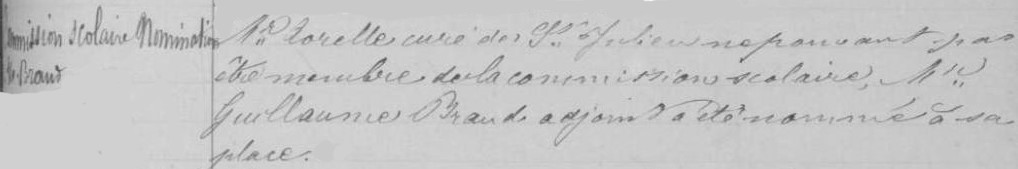 Commission scolaire Nomination
Mr Brand
Mr Torelle curé de St Julien ne pouvant pas
être membre de la commission scolaire, Mr
Guillaume Brand adjoint a été nommé à sa
place.